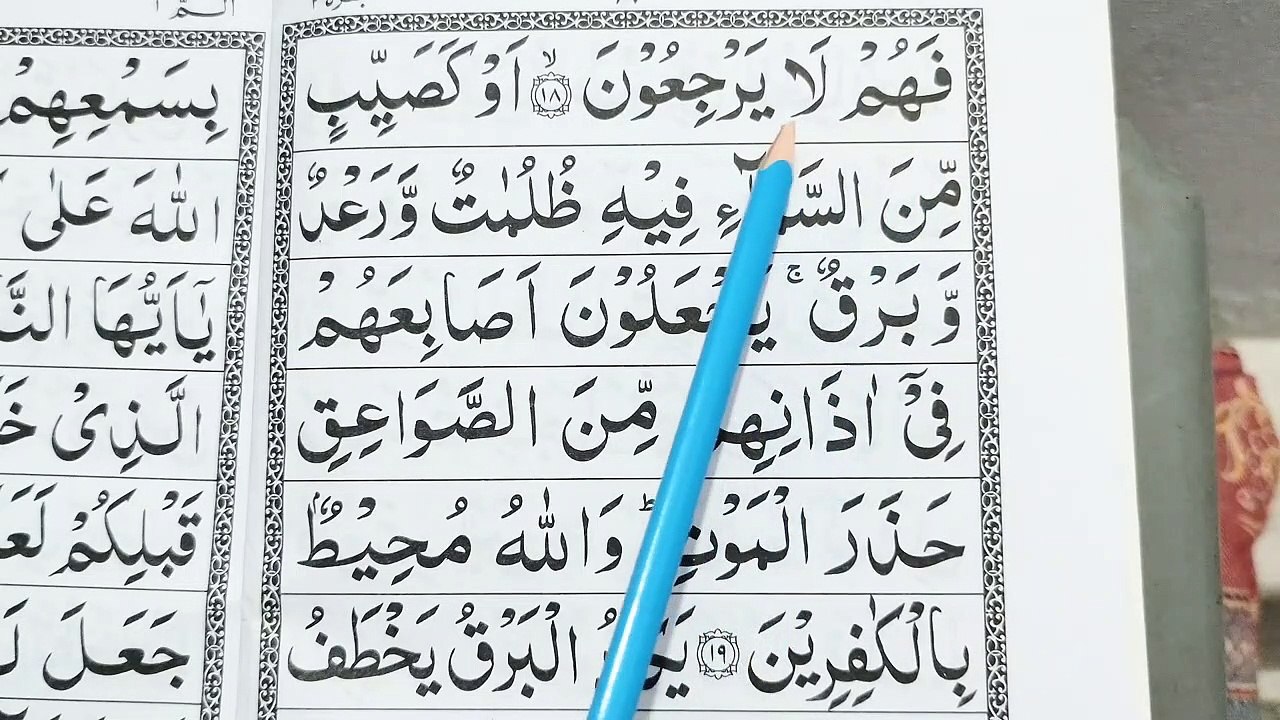 فَهُمْ لَا يَرْجِعُوْنَ ۙ﴿۱۸﴾ اَوْ كَصَيِّبٍ
مِّنَ السَّمَآءِ فِيْهِ ظُلُمٰتٌ وَّرَعْدٌ
وَّ بَرْقٌ ۚ يَجْعَلُوْنَ اَصَابِعَهُمْ
فِيْۤ اٰذَانِهِمْ مِّنَ الصَّوَاعِقِ
حَذَرَ الْمَوْتِ ؕ وَاللّٰهُ مُحِيْطٌۢ
بِالْكٰفِرِيْنَ ﴿۱۹﴾ يَكَادُ الْبَرْقُ يَخْطَفُ
الٓمّٓ ۱
بِسَمْعِهِمْ
اللّٰهَ عَلٰى
يٰۤاَيُّهَا
الَّذِىْ
قَبْلِكُمْ
جَعَلَ